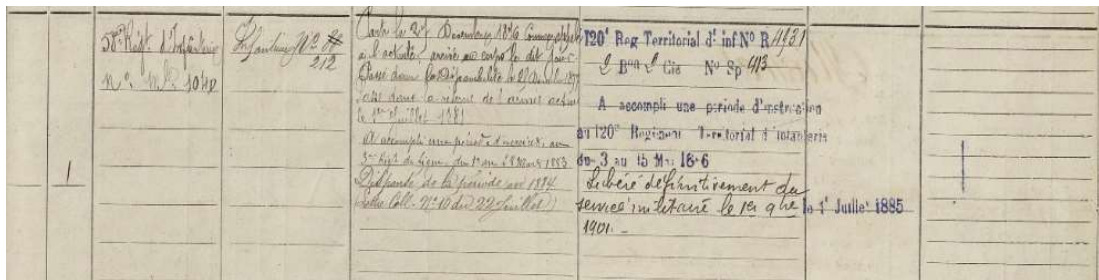 58me Régt. d'Infanterie
No. Mle 1040
1
Infanterie No 87
212
Parti le 27 Décembre 1876 Convoqué
à l'activité, arrivé au corps le dit jour.
Passé dans la Disponibilité le
Passé dans la réserve de l'armée active
le 1er Juillet 1881
A accompli une période d'exercices au
3me Régt. de Ligne, du 1er au 28 1883
Dispensé de la période en 1884
(Lettre Coll. No 10 du 22 Juillet)
120e Reg Territorial d' inf No R 4931
2 Bon 2 Cie No Sp 413
A accompli une période d'instruction
au 120e Régiment Territorial d'infanterie
du 3 au 15 1886
Libéré définitivement du
service militaire le 1er
1901.
le 1r Juillet 1885